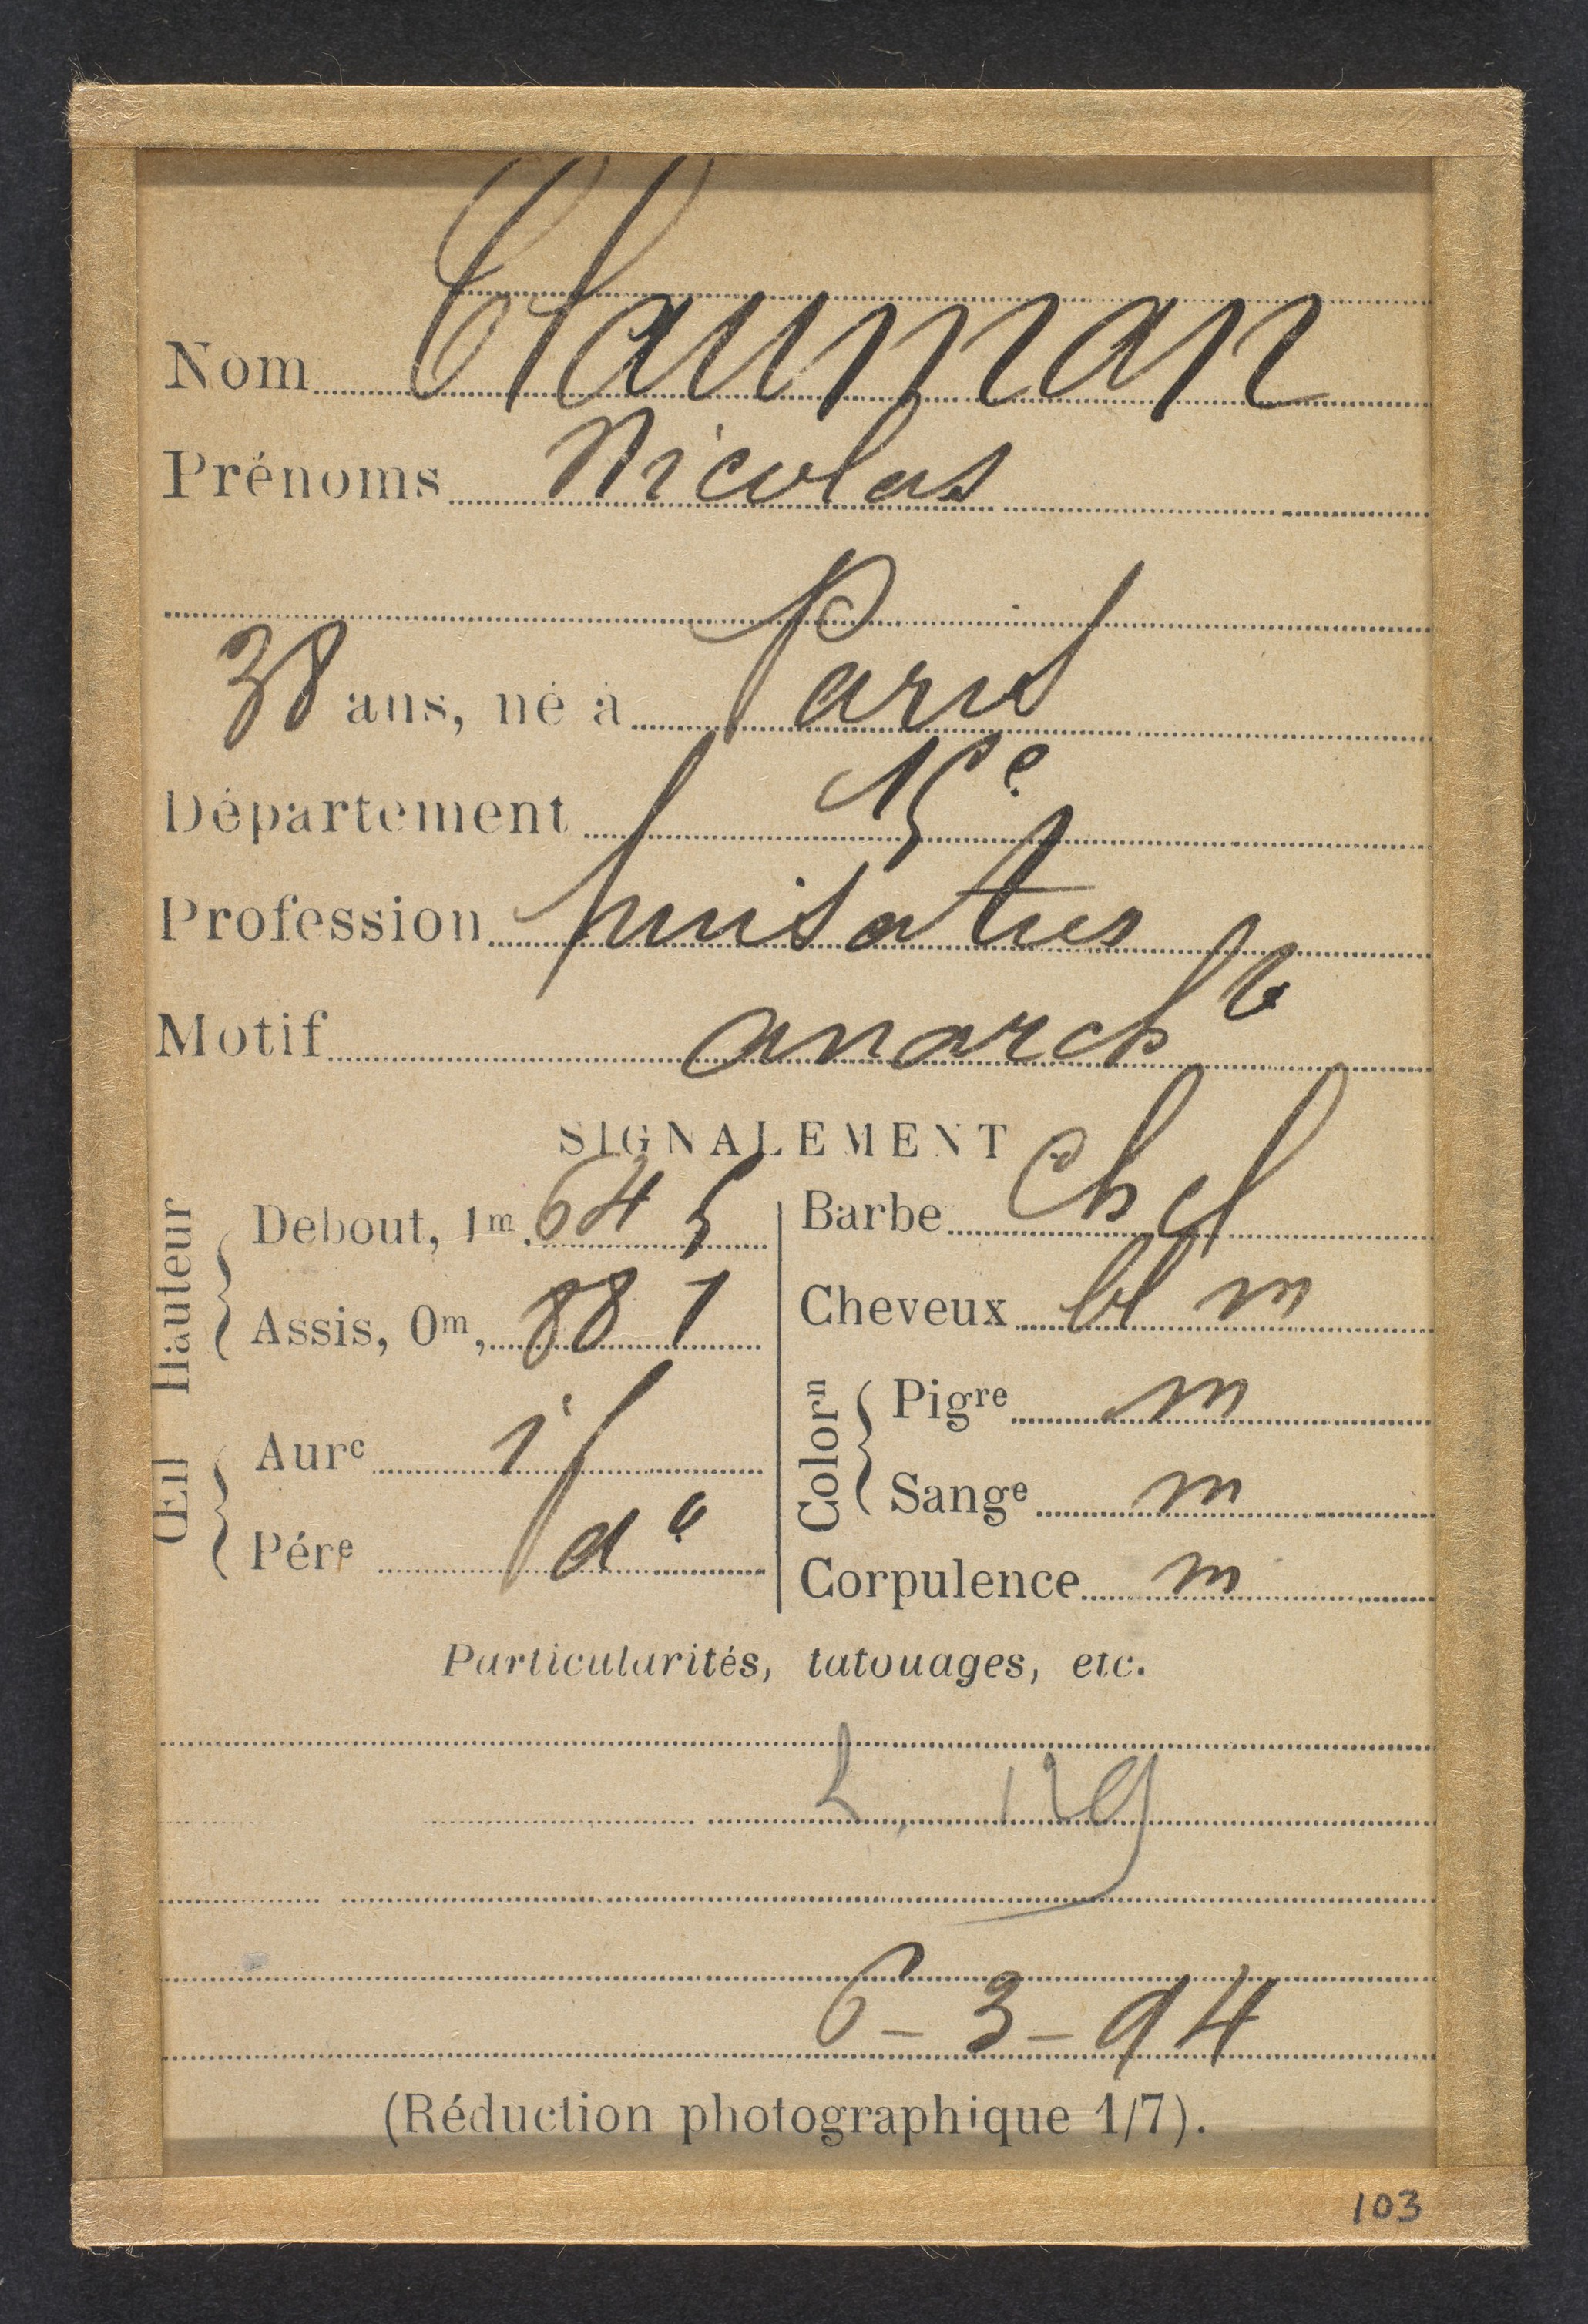 Nom Chauman
Prénoms Nicolas
38 ans, né à Paris
Département 15e
Profession puisatier
Motif anarch
SIGNALEMENT
Hauteur
Debout, 1m. 64 5
Assis, 0m, 88 1
Œil
Aure
Père do
Barbe Ch
Cheveux bl m
Colorn
Pigre m
Sange m
Corpulence m
Particularités, tatouages, etc.
6-3-94
(Réduction photographique 1/7).
103